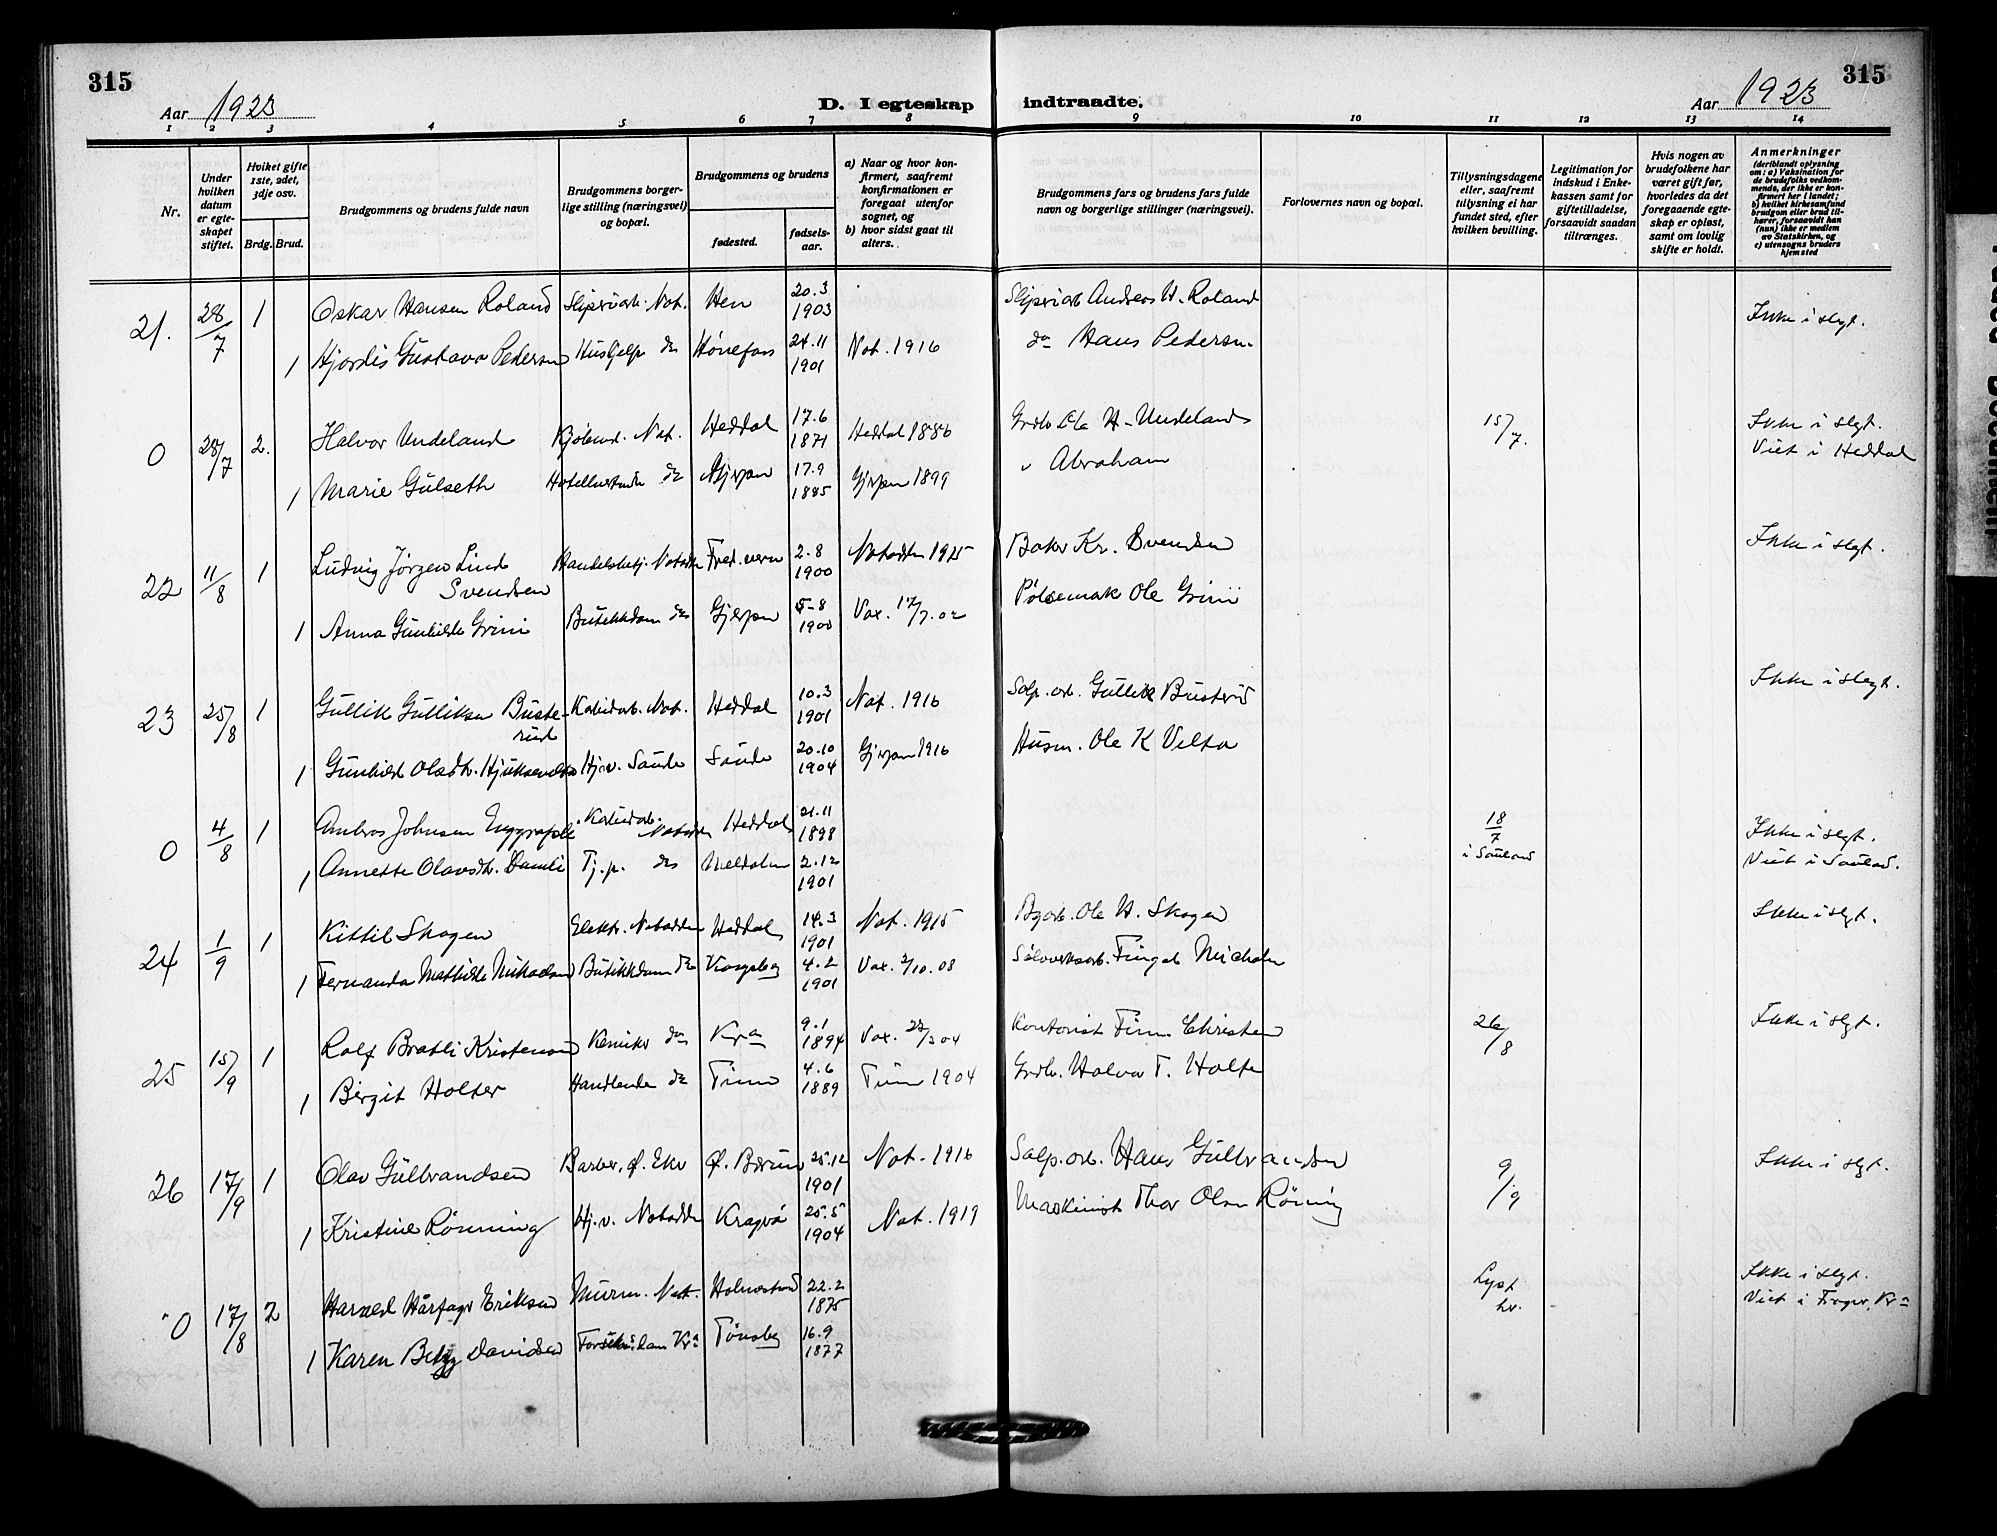 315
Aar 1923
D. I egteskap indtraadte.
Aar 1923
315
1 2 3 4 5 6 7 8 9 10 11 12 13 14
Nr.
Under hvilken datum er egteskapet stiftet.
Hviket gifte 1ste, 2det, 3dje osv.
Brdg. Brud.
Brudgommens og brudens fulde navn
Brudgommens borgerlige stilling (næringsvei) og bopæl.
Brudgommens og brudens
fødested.
fødselsaar.
a) Naar og hvor konfirmert, saafremt konfirmationen er foregaat utenfor sognet, og
b) hvor sidst gaat til alters.
Brudgommens fars og brudens fars fulde navn og borgerlige stillinger (næringsvei).
Forlovernes navn og bopæl.
Tillysningsdagene eller, saafremt tillysning ei har fundet sted, efter hvilken bevilling.
Legitimation for indskud i Enkekassen samt for giftetilladelse, forsaavidt saadan tiltrænges.
Hvis nogen av brudefolkene har været gift før, hvorledes da det foregaaende egteskap er opløst, samt om lovlig skifte er holdt.
Anmerkninger
(deriblandt oplysning om: a) Vaksination for de brudefolks vedkommende, der ikke er konfirmert her i landet; b) hvilket kirkesamfund brudgom eller brud tilhører, forsaavidt han (hun) ikke er medlem av Statskirken, og c) utensogns bruders hjemsted
21. 28/7 1 Oskar Hansen Roland Sliperiarb. Not. Hen 20.3 1903 Sliperiarb Anders H. Roland Ikke i slegt.
1 Hjördis Gustava Pedersen Hushjelp do Hönefoss 24.11 1901 Not. 1916 do Hans Pedersen.
0 28/7 2. Halvor Undeland Kjöbmd. Not. Heddal 17.6 1871 Heddal 1886 Grdb. Ole H. Undeland 15/7. Ikke i slegt.
Viet i Heddal
1 Marie Gulseth do Gjerpen 17.9 1885 Gjerpen 1899 " Abraham
22 11/8 1 Ludvig Jörgen Lind Svendsen Notodden Fred.vern 2.8 1900 Notodden 1915 Baker Kr. Svendsen Ikke i slegt.
1 Anna Gunhilde Grini Butikkdam do Gjerpen 5-8 1900 Vax. 17/7.02 Pölsemak Ole Grini
23 25/8 1 Gullik Gulliksen Busterud Karbidarb. Not. Heddal 10.3 1901 Not. 1916 Salp.arb. Gullik Busterud Ikke i slegt.
1 Gunhild Olsdtr. Hj.v. Saude Saude 20.10 1904 Gjerpen 1916 Husm. Ole K Velta
0 4/8 1 Ambros Johnsen Karbidarb. Notodden Heddal 21.11 1898 18/7 i Sauland Ikke i slegt.
Viet i Sauland.
1 Annette Olavsdtr. Damli Tj.p. do 2.12 1901
24 1/9 1 Kittil Skogen Elektr. Notodden Heddal 14.3 1901 Not. 1915 Byarb. Ole H. Skogen Ikke i slegt.
1 Fernanda Mathilde Butikkdam do Kongsberg 4.2 1901 Vax. 2/10.08 Sölverksarb.
25 15/9 1 Rolf Bratli Kristensen Kemiker do Kra 9.1 1894 Vax. Kontorist Finn Christensen 26/8 Ikke i slegt.
1 Birgit Holter Handlende do Tinn 4.6 1889 Tinn 1904 Grdb. Halvor T. Holte
26 17/9 1 Olav Gulbrandsen Barber, Ø. Eker Ø. Bærum 25.12 1901 Not. 1916 Salp.arb. Hans Gulbrandsen 9/9 Ikke i slegt.
1 Kristine Rönning Hj.v. Notodden Kragerö 25.5 1904 Not. 1919 Maskinist Thor Olsen Rönning
0 17/8 2 Harald Hårfagr Eriksen Murm. Not. Holmestrand 22.2 1875 Lyst hr. Ikke i slegt.
Viet i Kra
1 Karen Betzy Davidsen Kra Tönsberg 16.9 1877